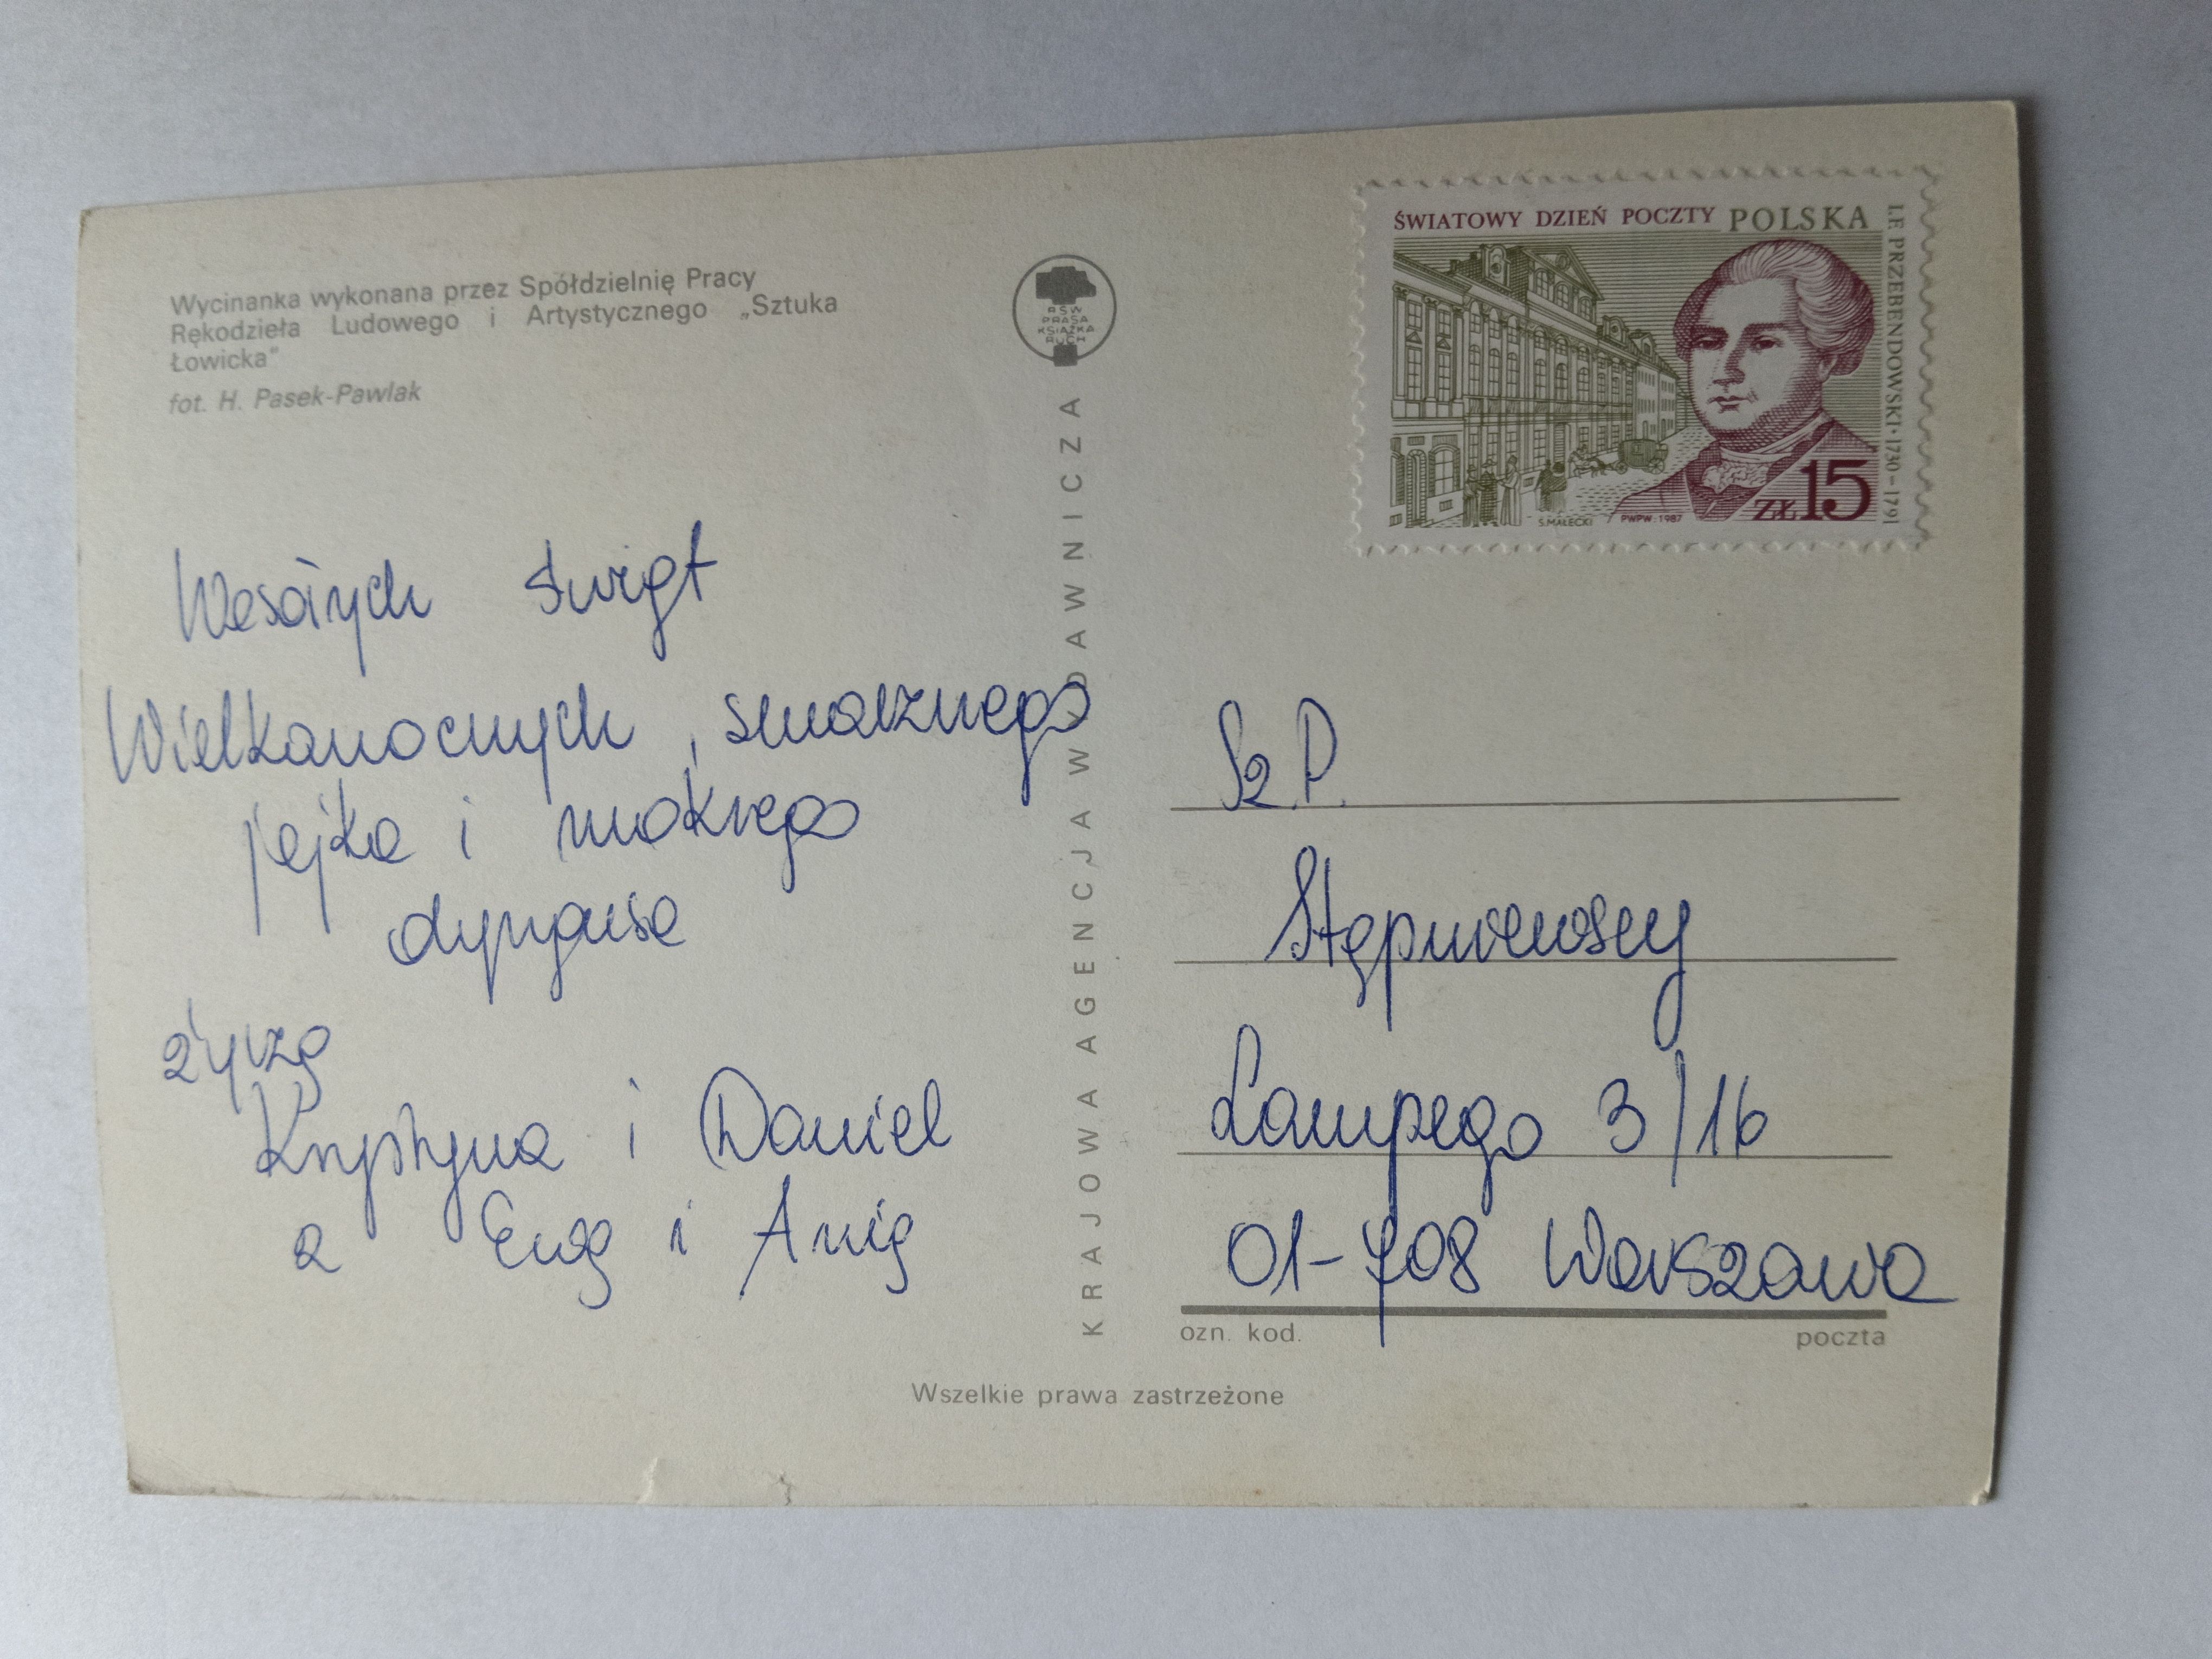 Wycinanka wykonana przez Spółdzielnię Pracy
Rękodzieła Ludowego i Artystycznego „Sztuka
Łowicka”
fot. H. Pasek-Pawlak
Wesołych Świąt
Wielkanocnych, smacznego
jajka i mokrego
dyngusa
życzą
Krystyna i Daniel
z Ewą i Anią
RSW
PRASA
KSIĄŻKA
RUCH
KRAJOWA AGENCJA WYDAWNICZA
ŚWIATOWY DZIEŃ POCZTY POLSKA
I.F. PRZEBENDOWSKI • 1730 – 1791
ZŁ 15
S.MAŁECKI PWPW. 1987
Sz.P.
Lampego 3/16
01-708 Warszawa
ozn. kod. poczta
Wszelkie prawa zastrzeżone